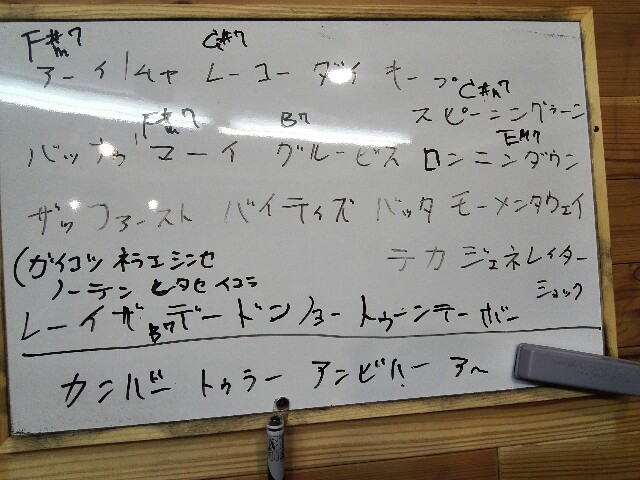 F#m7 C#7
アーイムャ レーコー ダイ キープ
C#m7
スピーニングラーン
F#m7 B7 EM7
バッナゥ マーイ グルービス ロンニンダウン
ザッファースト バイティズ バッタ モーメンタウェイ
(ガイコツ ネラエ シンセ テカ ジェネレイター
ノーテン ヒタセイコラ ショック
レーイザ デードン ショートゥーンテーボー
B7
カンバー トゥラー アンビバー アー